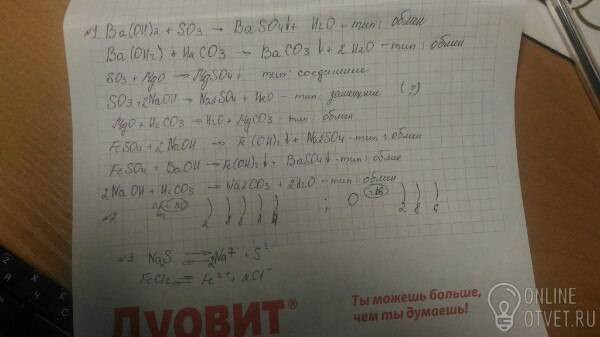 №1 Ba(OH)2 + SO3 → BaSO4↓ + H2O – тип: обмен
Ba(OH2) + H2CO3 → BaCO3↓ + 2H2O – тип: обмен
SO3 + MgO → MgSO4↓ тип: соединение
SO3 + 2NaOH → Na2SO4 + H2O – тип: замещение (?)
MgO + H2CO3 → H2O + MgCO3 – тип: обмен
FeSO4 + 2NaOH → Fe(OH)2↓ + Na2SO4 – тип: обмен
FeSO4 + BaOH → Fe(OH)2↓ + BaSO4↓ – тип: обмен
2NaOH + H2CO3 → Na2CO3 + 2H2O – тип: обмен
№2
№3 Na2S ⇄ 2Na+ + S2-
FeCl2 ⇄ Fe2+ + 2Cl-
ДУОВИТ®
Ты можешь больше,
чем ты думаешь!
ONLINE
OTVET.RU